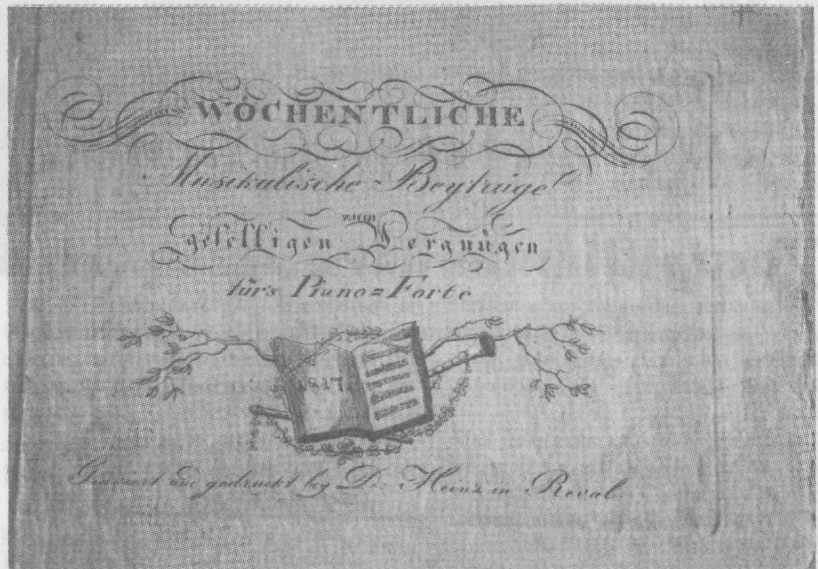 WÖCHENTLICHE
Musikalische Beyträge
zum
geselligen Vergnügen
fürs Piano=Forte
1817
und gedruckt by D. Heinz in Reval